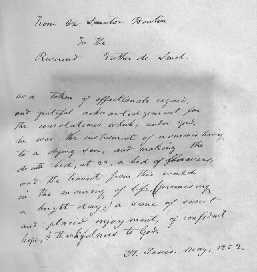 From Ex Senator Benton
To the
Reverend Father de Smet.
as a token of affectionate regard,
and grateful acknowledgement for
the consolations which, under God,
he was the instrument of administering
to a dying son, and making the
death bed, at 22, a bed of
and the transit from this world
in the morning of life (promising
a bright day,) a scene of sweet
and placid enjoyment, of confident
hope, & thankfulness to God.
St. Louis. May, 1852.